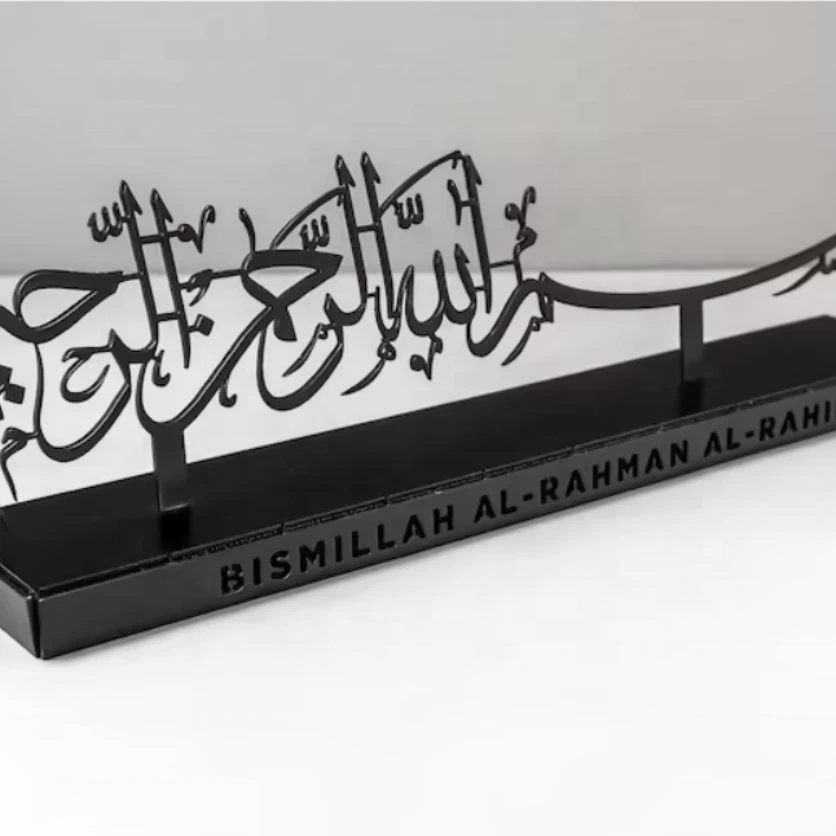 بسم الله الرحمن الرحيم
BISMILLAH AL-RAHMAN AL-RAHI